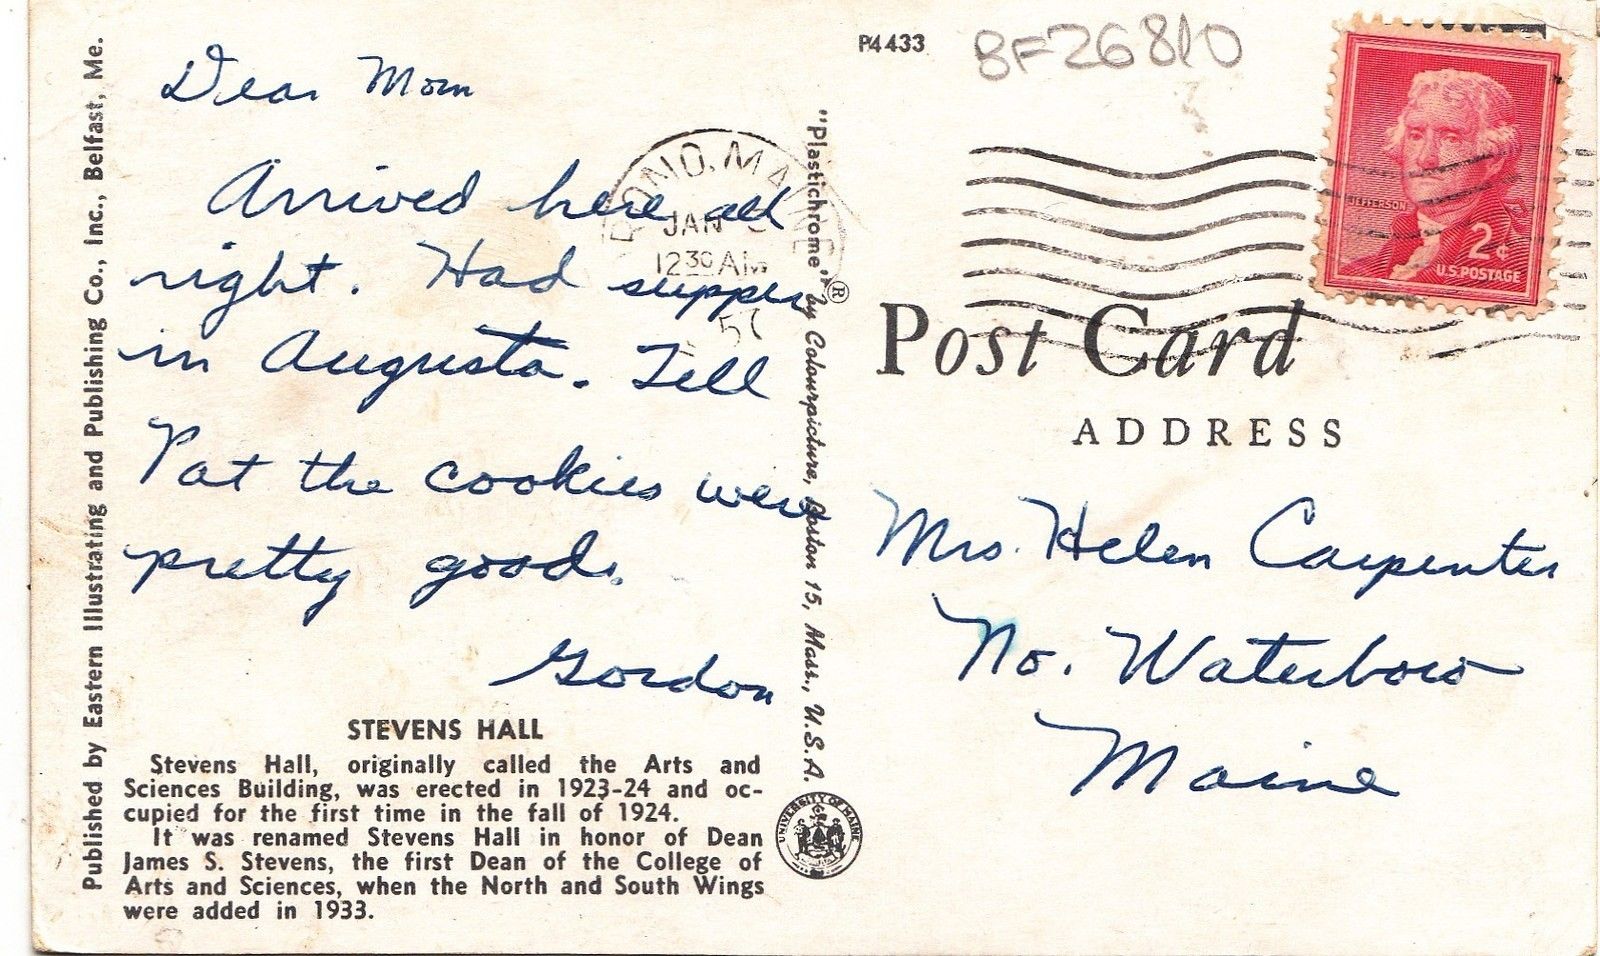 P4433
8F26810
Dear Mom
Arrived here all
right. Had supper
in Augusta. Tell
Pat the cookies were
pretty good.
Gordon
ORONO, MAINE
JAN
12 30 AM
57
JEFFERSON
2¢
U.S. POSTAGE
Post Card
ADDRESS
Mrs. Helen Carpenter
No. Waterboro
Maine
STEVENS HALL
Stevens Hall, originally called the Arts and
Sciences Building, was erected in 1923-24 and oc-
cupied for the first time in the fall of 1924.
It was renamed Stevens Hall in honor of Dean
James S. Stevens, the first Dean of the College of
Arts and Sciences, when the North and South Wings
were added in 1933.
Published by Eastern Illustrating and Publishing Co., Inc., Belfast, Me.
"Plastichrome" ® by Colourpicture, Boston 15, Mass., U.S.A.
UNIVERSITY OF MAINE